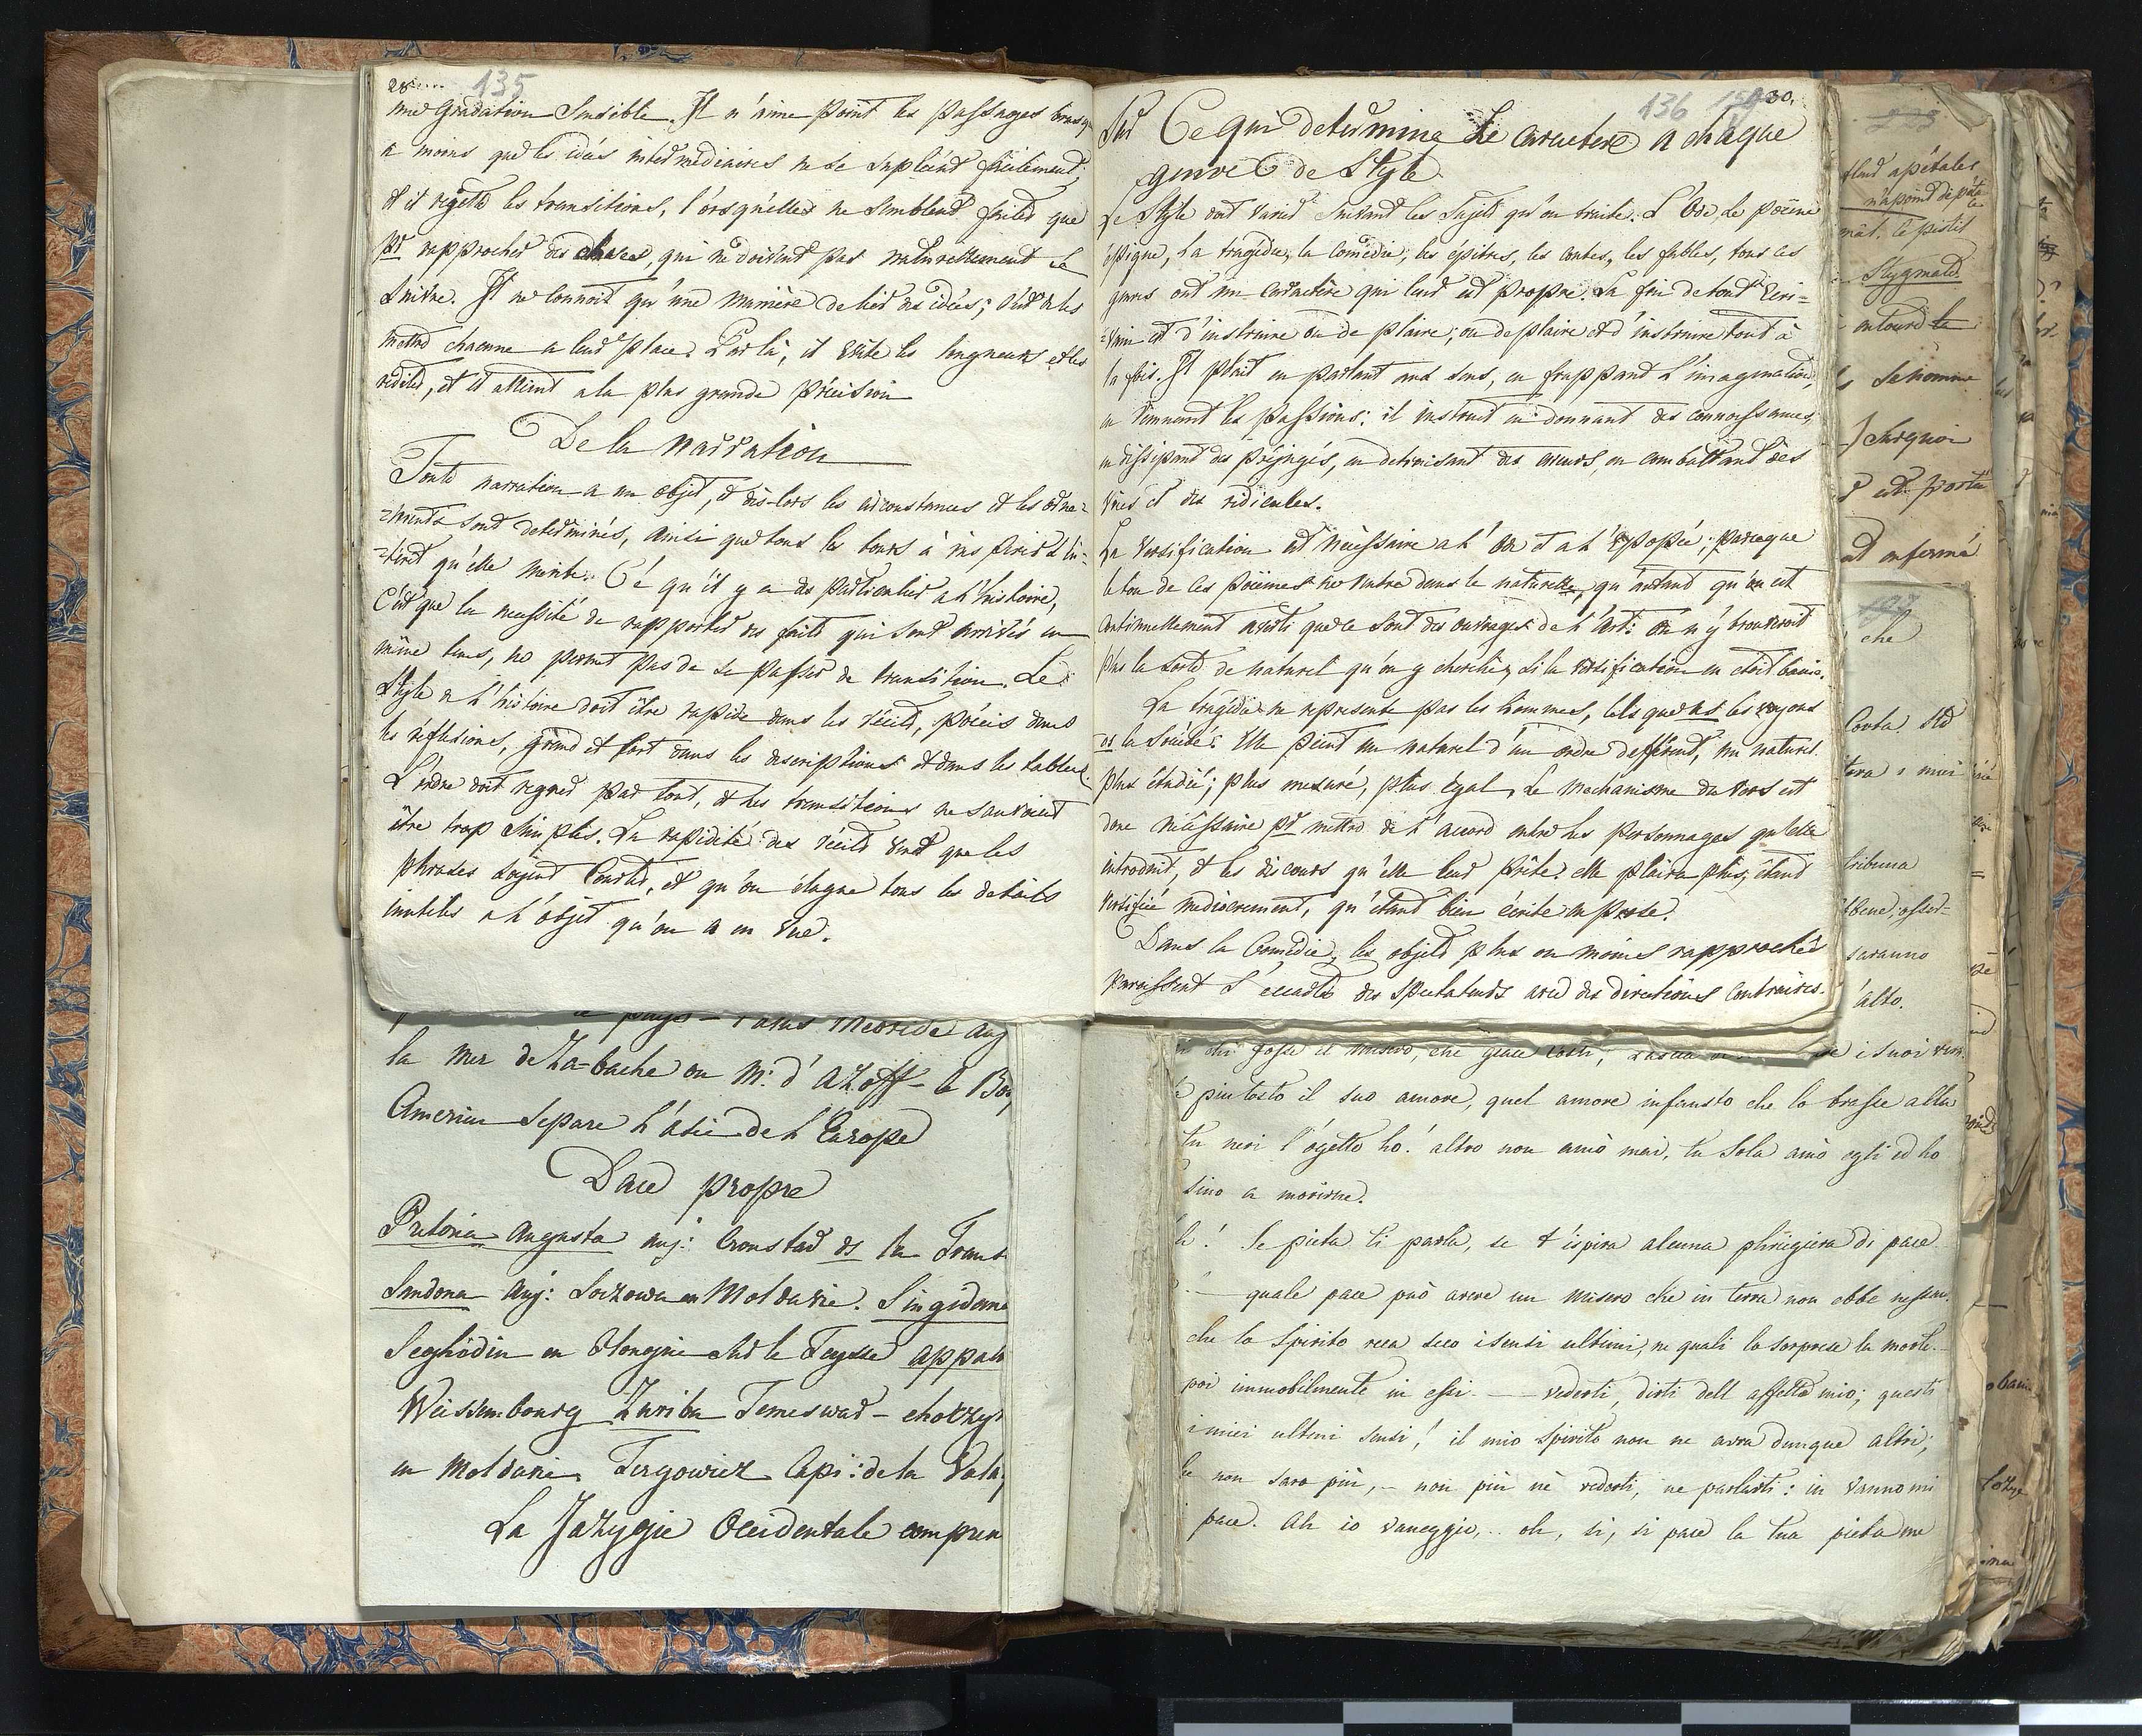 28....
135
une gradation Sensible. Il n'aime point les passages brusq
a moins que les idées intermédiaires ne se supléent facilement;
et il rejette les transitions, l'orsqu'elles ne semblent faites que
pr rapprocher des choses, qui ne doivent pas naturellement se
suivre. Il ne connoit qu'une manière de lier des idées; c'est de les
mettre chacune a leur place. Par là, il évite les longueurs et les
redites, et il atteint a la plus grande précision
De la Narration
Toute narration a un objet, et dès-lors les circonstances et les orne=
=ments sont determinés, ainsi que tous les tours à vis
qu'elle merite. Ce qu'il y a de particulier a l'histoire,
C'est que la necessité de rapporter des faits qui sont arrivés en
même tems, ne permet pas de se passer de transition. Le
Style de l'histoire doit être rapide dans les récits, précis dans
les réflexions, grand et fort dans les descriptions et dans les tableau
L'ordre doit regner par tout, et les transitions ne sauroient
être trop simples. La rapidité des récits veut que les
phrases soyent courtes, et qu'on élague tous les details
inutiles a l'objet qu'on a en vue.
136
30.
Sur Ce qui determine Le caractere a chaque
genre de Style
Le Style doit varier suivant les sujets qu'on traite. L'Ode, le poëme
épique, la tragédie, la comédie, les épitres, les contes, les fables, tous ces
genres ont un caractère qui leur est propre. La fin de tout Ecri=
=vain est d'instruire ou de plaire; ou de plaire et d'instruire tout à
la fois. Il plait en parlant aux sens, en frappant l'imagination,
en remuant les passions: il instruit en donnant des connoissances,
en dissipant des préjugés, en detruisant des erreurs, en combattant des
vices et des ridicules.
La versification est nécessaire a l'Ode et a l'épopée; parceque
le ton de ces poëmes ne rentre dans le naturelle, qu'autant qu'on est
continuellement averti que ce sont des ouvrages de l'art: On n'y trouveroit
plus la sorte de naturel qu'on y cherche, si la versification en étoit banie.
La tragédie ne represente pas les hommes, tels que ns les voyons
ds la société: Elle peint un naturel d'un ordre defférent, un naturel
plus étudié; plus mesuré, plus égal, Le mechanisme du vers est
donc nécessaire pr mettre de l'accord entre les personnages qu'elle
introduit, et les discours qu'elle leur prête: elle plaira plus, étant
versifiée mediocrement, qu'étant bien écrite en prose.
Dans la Comédie, les objets plus ou moins rapprochés
paroissent s'écarter des spectateurs avec des directions contraires.
pays
la Mer de Za-bache ou M: d'Azoff - le Bos
Cimerien Separe l'Asie de l'Europe
Dace propre
Pretoria Augusta auj: Cronstad ds la Trans
Sandona auj: Soczowa en Moldavie. Singidone
Seghédin en Hongrie sur le Teysse appul
Weissembourg Zuriba Temeswar - choczy
en Moldavie, Tergowicz Capi: de la Vala
La Jazygie Occidentale compren
piutosto il suo amore, quel amore infausto che lo trasse alla
tu neri l'ogetto ho! altro non amò mai, tu sola amò egli ed ho
sino a morirne.
Se pieta ti parla, se t'ispira alcuna preghiera di pace
quale pace può avere un misero che in terra non ebbe nessun
che lo Spirito reca seco i sensi ultimi, ne quali lo sorprese la morte.
poi immobilmente in essi. — vederti, dirti dell affetto mio; questi
i miei ultimi sensi! il mio spirito non ne avra dunque altri;
non saro più, - non più nè vederti, ne parlarti: in vanno mi
pace. Ah io vaneggio, .. oh, si, si pace la tua pieta me
apétales
n'a point de péta
le pistil
Stygmate
entouré le
Se nomme
Surquoi
est porté
est enfermé
197
che
tribuna
saranno
alto.
i suoi